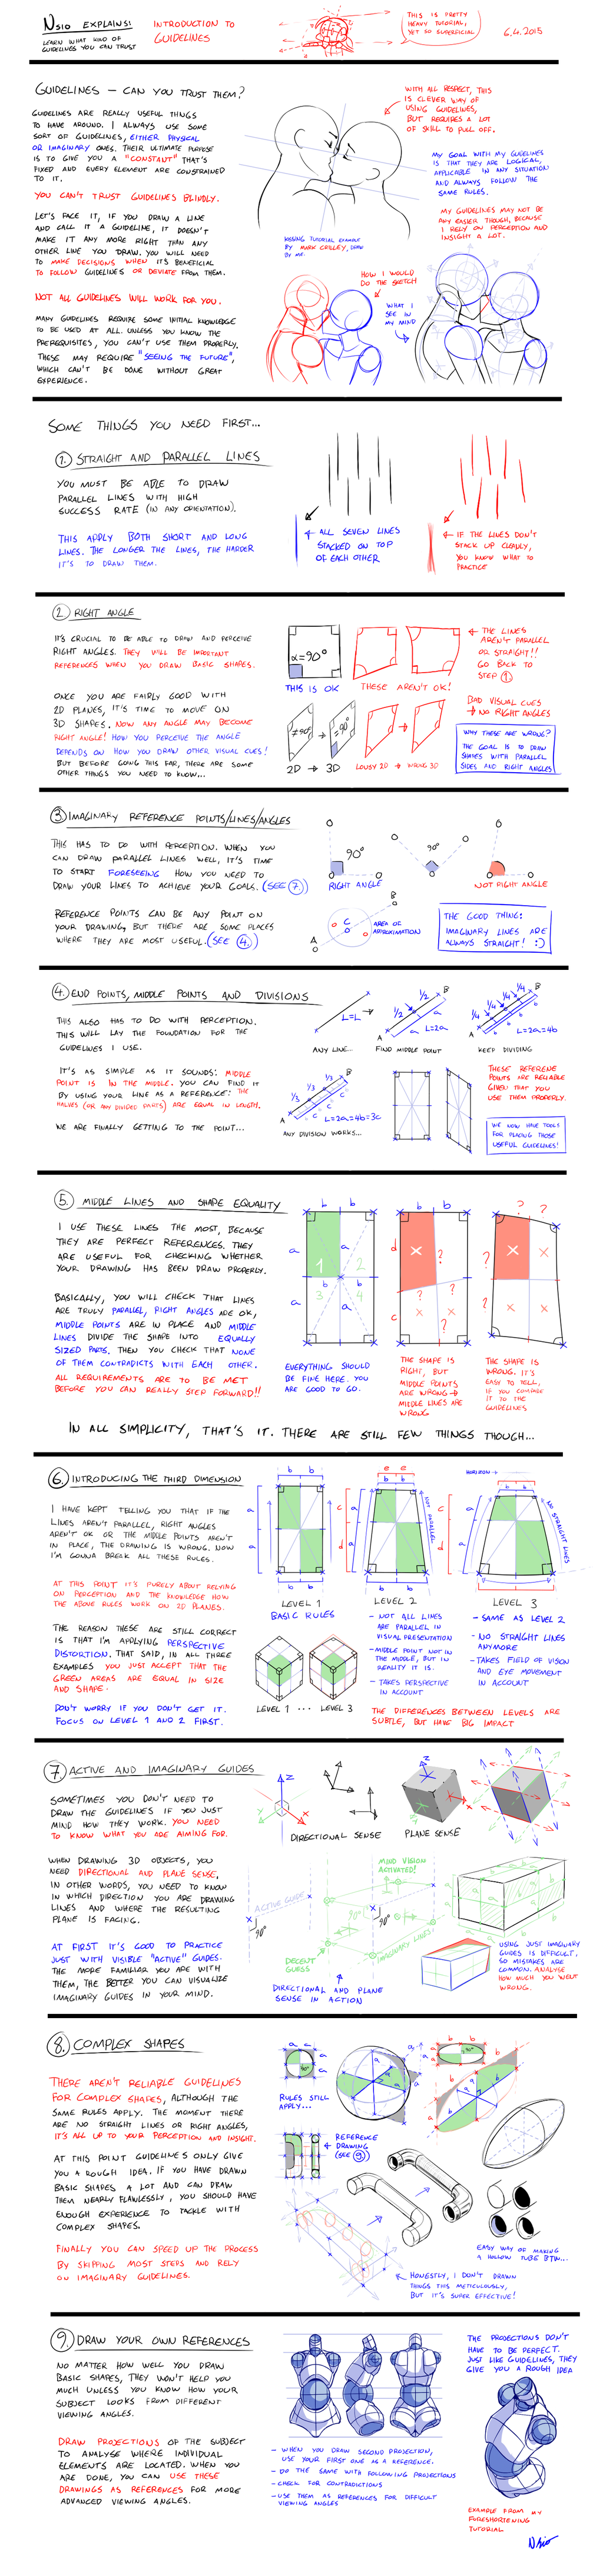 NSIO EXPLAINS!
LEARN WHAT KIND OF
GUIDELINES YOU CAN TRUST
INTRODUCTION TO
GUIDELINES
THIS IS PRETTY
HEAVY TUTORIAL,
YET SO SUPERFICIAL
6.4.2015
GUIDELINES – CAN YOU TRUST THEM?
GUIDELINES ARE REALLY USEFUL THINGS
TO HAVE AROUND. I ALWAYS USE SOME
SORT OF GUIDELINES, EITHER PHYSICAL
OR IMAGINARY ONES. THEIR ULTIMATE PURPOSE
IS TO GIVE YOU A "CONSTANT" THAT'S
FIXED AND EVERY ELEMENT ARE CONSTRAINED
TO IT.
YOU CAN'T TRUST GUIDELINES BLINDLY.
LET'S FACE IT, IF YOU DRAW A LINE
AND CALL IT A GUIDELINE, IT DOESN'T
MAKE IT ANY MORE RIGHT THAN ANY
OTHER LINE YOU DRAW. YOU WILL NEED
TO MAKE DECISIONS WHEN IT'S BENEFICIAL
TO FOLLOW GUIDELINES OR DEVIATE FROM THEM.
NOT ALL GUIDELINES WILL WORK FOR YOU.
MANY GUIDELINES REQUIRE SOME INITIAL KNOWLEDGE
TO BE USED AT ALL. UNLESS YOU KNOW THE
PREREQUISITES, YOU CAN'T USE THEM PROPERLY.
THESE MAY REQUIRE "SEEING THE FUTURE",
WHICH CAN'T BE DONE WITHOUT GREAT
EXPERIENCE.
WITH ALL RESPECT, THIS
IS CLEVER WAY OF
USING GUIDELINES,
BUT REQUIRES A LOT
OF SKILL TO PULL OFF.
MY GOAL WITH MY GUIDELINES
IS THAT THEY ARE LOGICAL,
APPLICABLE IN ANY SITUATION
AND ALWAYS FOLLOW THE
SAME RULES.
MY GUIDELINES MAY NOT BE
ANY EASIER THOUGH, BECAUSE
I RELY ON PERCEPTION AND
INSIGHT A LOT.
KISSING TUTORIAL EXAMPLE
BY MARK CRILLEY, DRAW
BY ME.
HOW I WOULD
DO THE SKETCH
WHAT I
SEE IN
MY MIND
SOME THINGS YOU NEED FIRST...
1. STRAIGHT AND PARALLEL LINES
YOU MUST BE ABLE TO DRAW
PARALLEL LINES WITH HIGH
SUCCESS RATE (IN ANY ORIENTATION).
THIS APPLY BOTH SHORT AND LONG
LINES. THE LONGER THE LINES, THE HARDER
IT'S TO DRAW THEM.
ALL SEVEN LINES
STACKED ON TOP
OF EACH OTHER
IF THE LINES DON'T
STACK UP CLEANLY,
YOU KNOW WHAT TO
PRACTICE
2. RIGHT ANGLE
IT'S CRUCIAL TO BE ABLE TO DRAW AND PERCEIVE
RIGHT ANGLES. THEY WILL BE IMPORTANT
REFERENCES WHEN YOU DRAW BASIC SHAPES.
ONCE YOU ARE FAIRLY GOOD WITH
2D PLANES, IT'S TIME TO MOVE ON
3D SHAPES. NOW ANY ANGLE MAY BECOME
RIGHT ANGLE! HOW YOU PERCEIVE THE ANGLE
DEPENDS ON HOW YOU DRAW OTHER VISUAL CUES!
BUT BEFORE GOING THIS FAR, THERE ARE SOME
OTHER THINGS YOU NEED TO KNOW...
α=90°
THIS IS OK
THESE AREN'T OK!
THE LINES
AREN'T PARALLEL
OR STRAIGHT!!
GO BACK TO
STEP 1
≠90°
=90°
2D → 3D
LOUSY 2D → WRONG 3D
BAD VISUAL CUES
→ NO RIGHT ANGLES
WHY THESE ARE WRONG?
THE GOAL IS TO DRAW
SHAPES WITH PARALLEL
SIDES AND RIGHT ANGLES
3 IMAGINARY REFERENCE POINTS/LINES/ANGLES
THIS HAS TO DO WITH PERCEPTION. WHEN YOU
CAN DRAW PARALLEL LINES WELL, IT'S TIME
TO START FORESEEING HOW YOU NEED TO
DRAW YOUR LINES TO ACHIEVE YOUR GOALS. (SEE 7)
REFERENCE POINTS CAN BE ANY POINT ON
YOUR DRAWING, BUT THERE ARE SOME PLACES
WHERE THEY ARE MOST USEFUL. (SEE 4)
90°
RIGHT ANGLE
90°
NOT RIGHT ANGLE
A
B
C
AREA OF
APPROXIMATION
THE GOOD THING:
IMAGINARY LINES ARE
ALWAYS STRAIGHT! :)
4. END POINTS, MIDDLE POINTS AND DIVISIONS
THIS ALSO HAS TO DO WITH PERCEPTION.
THIS WILL LAY THE FOUNDATION FOR THE
GUIDELINES I USE.
IT'S AS SIMPLE AS IT SOUNDS: MIDDLE
POINT IS IN THE MIDDLE. YOU CAN FIND IT
BY USING YOUR LINE AS A REFERENCE: THE
HALVES (OR ANY DIVIDED PARTS) ARE EQUAL IN LENGTH.
WE ARE FINALLY GETTING TO THE POINT...
L=L
ANY LINE...
A
B
1/2 1/2
a a
L=2a
FIND MIDDLE POINT
A
B
1/4 1/4 1/4 1/4
b b b b
L=2a=4b
KEEP DIVIDING
A
B
1/3 1/3 1/3
c c c
L=2a=4b=3c
ANY DIVISION WORKS...
THESE REFERENE
POINTS ARE RELIABLE
GIVEN THAT YOU
USE THEM PROPERLY.
WE NOW HAVE TOOLS
FOR PLACING THOSE
USEFUL GUIDELINES!
5. MIDDLE LINES AND SHAPE EQUALITY
I USE THESE LINES THE MOST, BECAUSE
THEY ARE PERFECT REFERENCES. THEY
ARE USEFUL FOR CHECKING WHETHER
YOUR DRAWING HAS BEEN DRAW PROPERLY.
BASICALLY, YOU WILL CHECK THAT LINES
ARE TRULY PARALLEL, RIGHT ANGLES ARE OK,
MIDDLE POINTS ARE IN PLACE AND MIDDLE
LINES DIVIDE THE SHAPE INTO EQUALLY
SIZED PARTS. THEN YOU CHECK THAT NONE
OF THEM CONTRADICTS WITH EACH OTHER.
ALL REQUIREMENTS ARE TO BE MET
BEFORE YOU CAN REALLY STEP FORWARD!!
b b
a a
1 2
b b
3 4
a a
EVERYTHING SHOULD
BE FINE HERE. YOU
ARE GOOD TO GO.
b b
d
?
? ?
c
?
THE SHAPE IS
RIGHT, BUT
MIDDLE POINTS
ARE WRONG →
MIDDLE LINES ARE
WRONG
? ?
?
?
?
?
THE SHAPE IS
WRONG. IT'S
EASY TO TELL,
IF YOU COMPARE
IT TO THE
GUIDELINES
IN ALL SIMPLICITY, THAT'S IT. THERE ARE STILL FEW THINGS THOUGH...
6. INTRODUCING THE THIRD DIMENSION
I HAVE KEPT TELLING YOU THAT IF THE
LINES AREN'T PARALLEL, RIGHT ANGLES
AREN'T OK OR THE MIDDLE POINTS AREN'T
IN PLACE, THE DRAWING IS WRONG. NOW
I'M GONNA BREAK ALL THESE RULES.
AT THIS POINT IT'S PURELY ABOUT RELYING
ON PERCEPTION AND THE KNOWLEDGE HOW
THE ABOVE RULES WORK ON 2D PLANES.
THE REASON THESE ARE STILL CORRECT
IS THAT I'M APPLYING PERSPECTIVE
DISTORTION. THAT SAID, IN ALL THREE
EXAMPLES YOU JUST ACCEPT THAT THE
GREEN AREAS ARE EQUAL IN SIZE
AND SHAPE.
DON'T WORRY IF YOU DON'T GET IT.
FOCUS ON LEVEL 1 AND 2 FIRST.
b b
a
a
b b
LEVEL 1
BASIC RULES
e e
b b
a c
a d
NOT PARALLEL
b b
LEVEL 2
- NOT ALL LINES
ARE PARALLEL IN
VISUAL PRESENTATION
- MIDDLE POINT NOT IN
THE MIDDLE, BUT IN
REALITY IT IS.
- TAKES PERSPECTIVE
IN ACCOUNT
HORIZON →
b b
a c
a d
NO STRAIGHT LINES
LEVEL 3
- SAME AS LEVEL 2
- NO STRAIGHT LINES
ANYMORE
- TAKES FIELD OF VISION
AND EYE MOVEMENT
IN ACCOUNT
LEVEL 1 ... LEVEL 3
THE DIFFERENCES BETWEEN LEVELS ARE
SUBTLE, BUT HAVE BIG IMPACT
7 ACTIVE AND IMAGINARY GUIDES
SOMETIMES YOU DON'T NEED TO
DRAW THE GUIDELINES IF YOU JUST
MIND HOW THEY WORK. YOU NEED
TO KNOW WHAT YOU ARE AIMING FOR.
WHEN DRAWING 3D OBJECTS, YOU
NEED DIRECTIONAL AND PLANE SENSE,
IN OTHER WORDS, YOU NEED TO KNOW
IN WHICH DIRECTION YOU ARE DRAWING
LINES AND WHERE THE RESULTING
PLANE IS FACING.
AT FIRST IT'S GOOD TO PRACTICE
JUST WITH VISIBLE "ACTIVE" GUIDES.
THE MORE FAMILIAR YOU ARE WITH
THEM, THE BETTER YOU CAN VISUALIZE
IMAGINARY GUIDES IN YOUR MIND.
Z
Y
X
DIRECTIONAL SENSE
Z
Y
X
PLANE SENSE
MIND VISION
ACTIVATED!
ACTIVE GUIDE
90°
90°
90°
DECENT
GUESS
IMAGINARY LINES!
DIRECTIONAL AND PLANE
SENSE IN ACTION
USING JUST IMAGINARY
GUIDES IS DIFFICULT,
SO MISTAKES ARE
COMMON. ANALYSE
HOW MUCH YOU WENT
WRONG.
8. COMPLEX SHAPES
THERE AREN'T RELIABLE GUIDELINES
FOR COMPLEX SHAPES, ALTHOUGH THE
SAME RULES APPLY. THE MOMENT THERE
ARE NO STRAIGHT LINES OR RIGHT ANGLES,
IT'S ALL UP TO YOUR PERCEPTION AND INSIGHT.
AT THIS POINT GUIDELINES ONLY GIVE
YOU A ROUGH IDEA. IF YOU HAVE DRAWN
BASIC SHAPES A LOT AND CAN DRAW
THEM NEARLY FLAWLESSLY, YOU SHOULD HAVE
ENOUGH EXPERIENCE TO TACKLE WITH
COMPLEX SHAPES.
FINALLY YOU CAN SPEED UP THE PROCESS
BY SKIPPING MOST STEPS AND RELY
ON IMAGINARY GUIDELINES.
RULES STILL
APPLY...
REFERENCE
DRAWING
(SEE 9)
EASY WAY OF MAKING
A HOLLOW TUBE BTW...
HONESTLY, I DON'T DRAWN
THINGS THIS METICULOUSLY,
BUT IT'S SUPER EFFECTIVE!
9. DRAW YOUR OWN REFERENCES
NO MATTER HOW WELL YOU DRAW
BASIC SHAPES, THEY WON'T HELP YOU
MUCH UNLESS YOU KNOW HOW YOUR
SUBJECT LOOKS FROM DIFFERENT
VIEWING ANGLES.
DRAW PROJECTIONS OF THE SUBJECT
TO ANALYSE WHERE INDIVIDUAL
ELEMENTS ARE LOCATED. WHEN YOU
ARE DONE, YOU CAN USE THESE
DRAWINGS AS REFERENCES FOR MORE
ADVANCED VIEWING ANGLES.
- WHEN YOU DRAW SECOND PROJECTION,
USE YOUR FIRST ONE AS A REFERENCE.
- DO THE SAME WITH FOLLOWING PROJECTIONS
- CHECK FOR CONTRADICTIONS
- USE THEM AS REFERENCES FOR DIFFICULT
VIEWING ANGLES
THE PROJECTIONS DON'T
HAVE TO BE PERFECT.
JUST LIKE GUIDELINES, THEY
GIVE YOU A ROUGH IDEA
EXAMPLE FROM MY
FORESHORTENING
TUTORIAL
Nsio